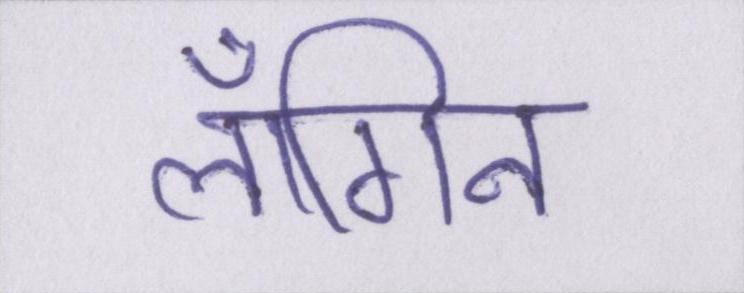 लँगिन